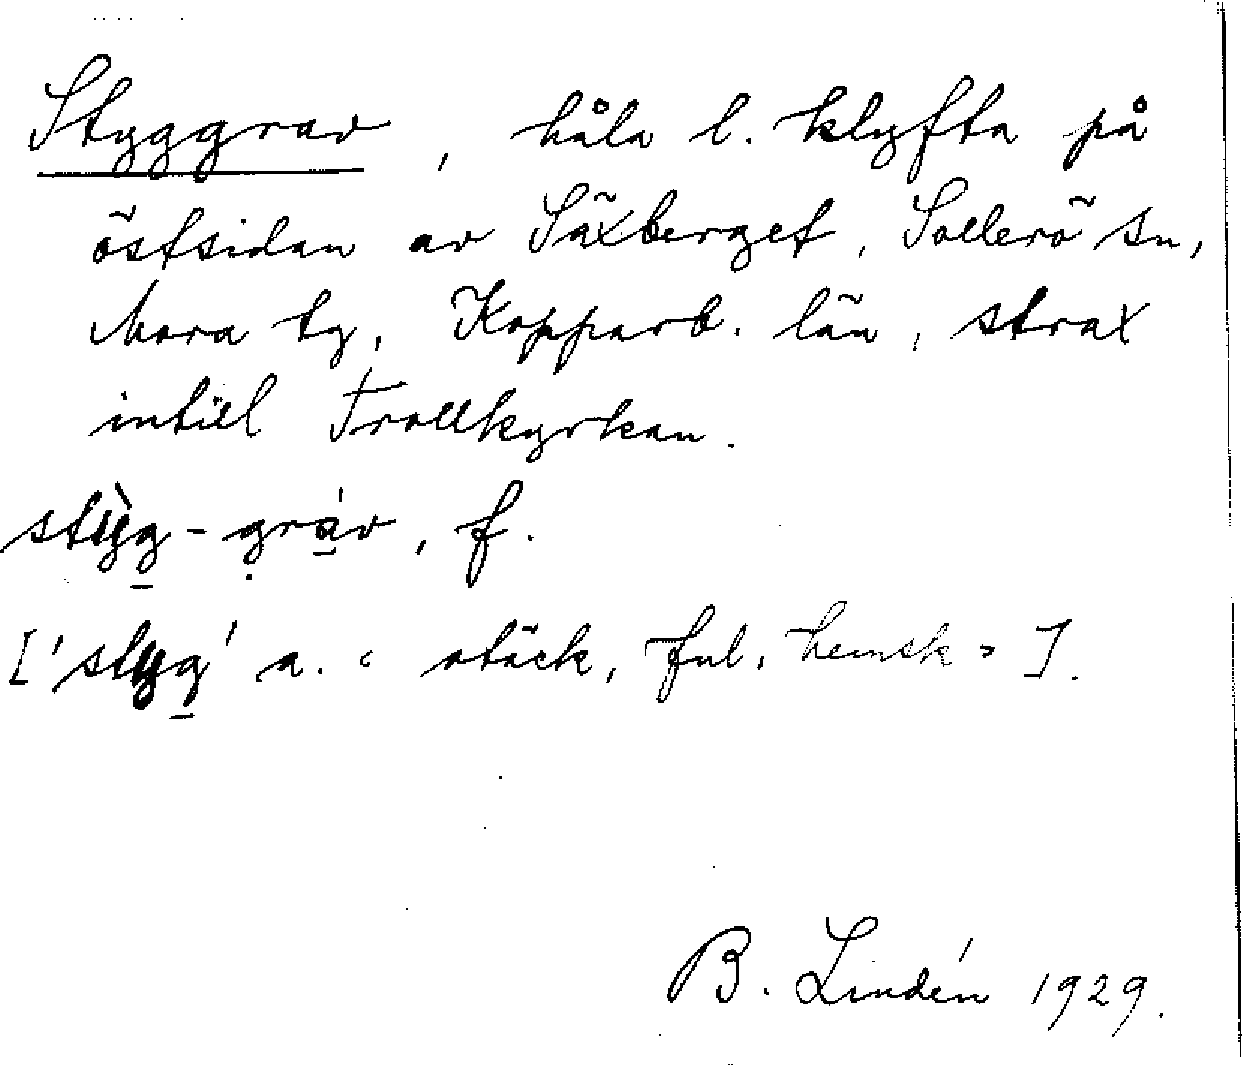 Styggrav, håla l. klyfta på
östsidan av Säxberget, Sollerö sn,
Mora tg, Kopparb. län, strax
intill Trollkyrkan.
stỳg-gráv, f.
['styg' a. = otäck, ful, hemsk = ].
B. Lindén 1929.